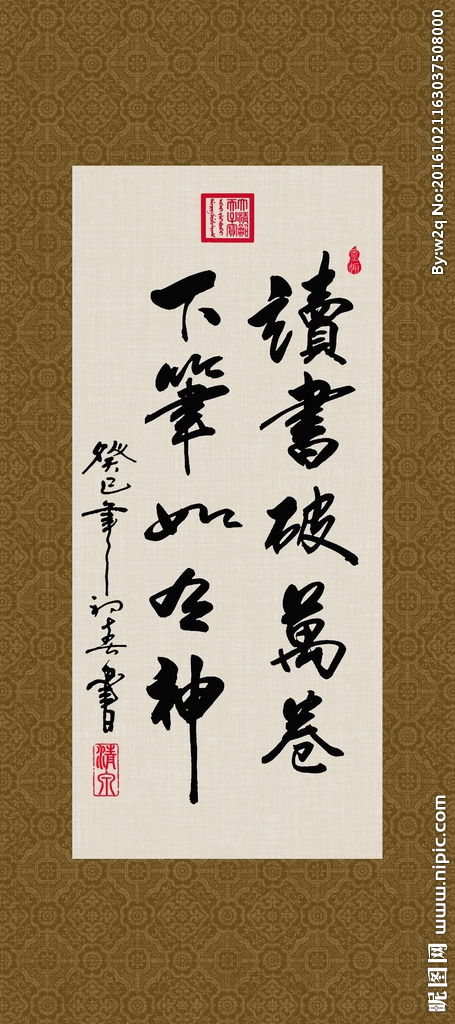 大清嗣天子寶
讀書破萬卷
下筆如有神
癸巳年初春書
清泉
By:w2q No:20161021163037508000
昵图网 www.nipic.com